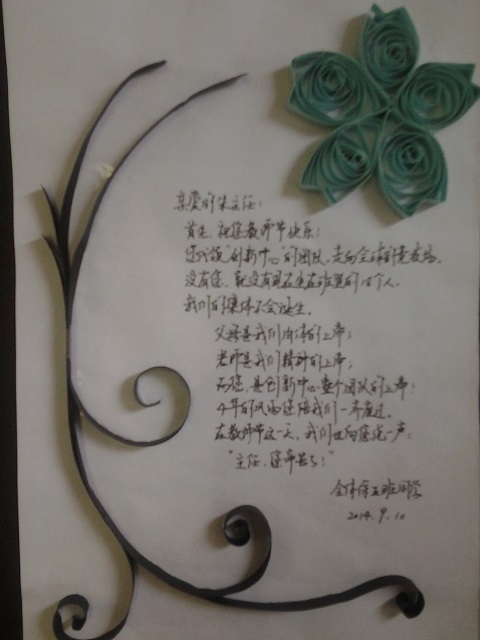 亲爱的朱主任：
首先，祝您教师节快乐！
您代领"创新中心"的团队，走向全球的竞技场。
没有您，就没有现在坐在班里的18个人，
我们的集体不会诞生。
父母是我们肉体的上帝；
老师是我们精神的上帝；
而您，是创新中心整个团队的上帝！
4年的风雨您陪我们一齐度过，
在教师节这一天，我们也向您说一声：
"主任，您辛苦了！"
全体 班同学
2014.9.10